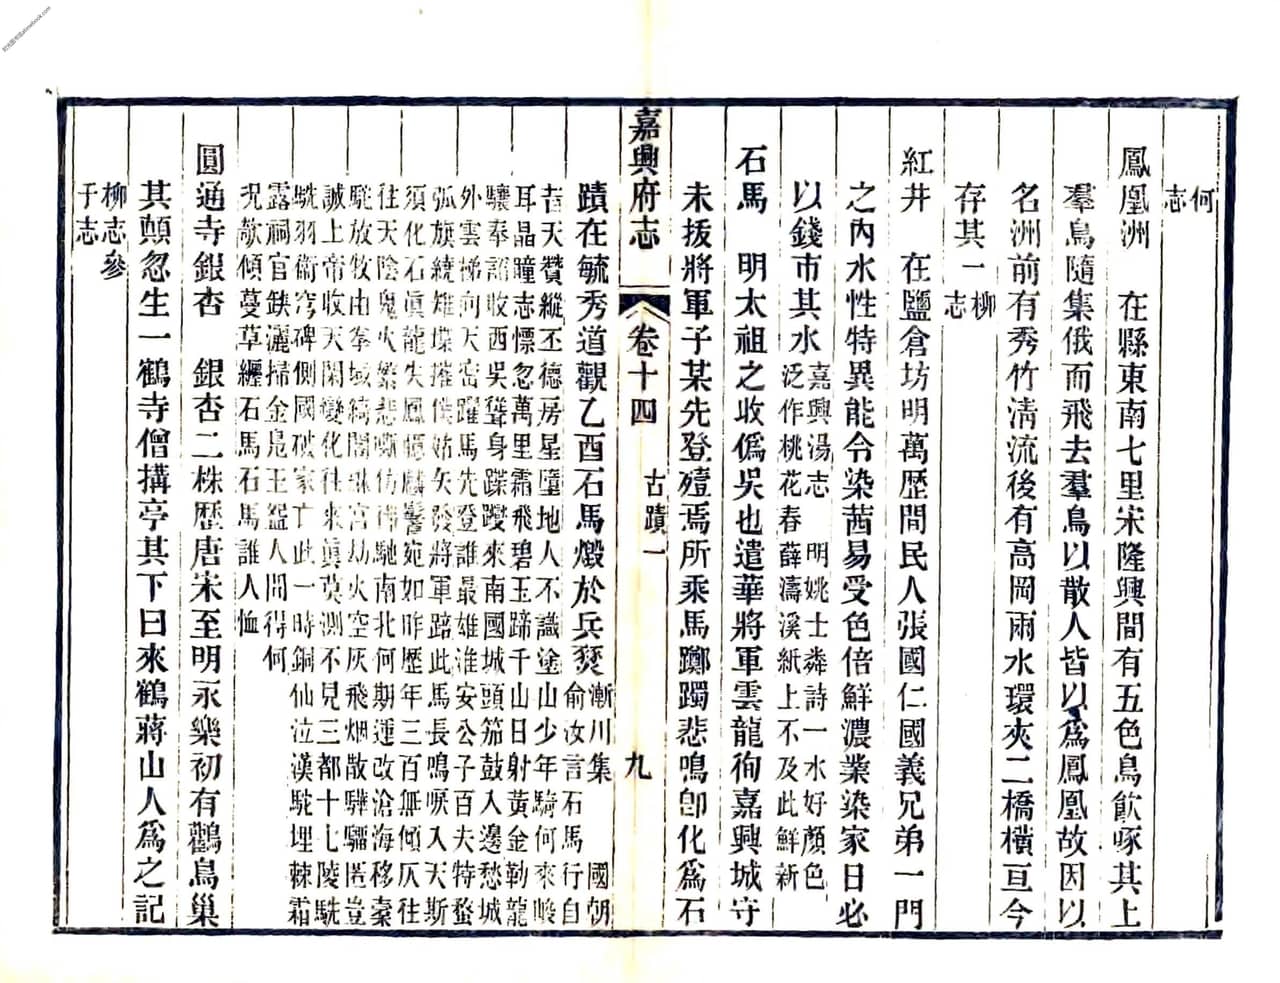 何
志
鳳凰洲　在縣東南七里宋隆興間有五色鳥飮啄其上
羣鳥隨集俄而飛去羣鳥以散人皆以爲鳳凰故因以
名洲前有秀竹淸流後有高岡雨水環夾二橋橫亘今
存其一
柳
志
紅井　在鹽倉坊明萬歷間民人張國仁國義兄弟一門
之內水性特異能令染茜易受色倍鮮濃業染家日必
以錢市其水
嘉興湯志　明姚士粦詩一水好顏色
泛作桃花春薛濤溪紙上不及此鮮新
石馬　明太祖之收僞吳也遣華將軍雲龍徇嘉興城守
未拔將軍子某先登殪焉所乘馬躑躅悲鳴卽化爲石
嘉興府志
卷十四
古蹟一
九
蹟在毓秀道觀乙酉石馬燬於兵燹
漸川集　國朝
俞汝言石馬行自
昔天贊縱丕德房星墮地人不識塗山少年騎何來
耳晶瞳志慓忽萬里霜飛碧玉蹄千山日射黃金勒龍
驤奉詔收西吳聳身躞躞來南國城頭笳鼓入邊愁城
外雲梯向天密躍馬先登誰最雄淮安公子百夫特蝥
弧旗繞雉堞摧僕姑矢發將軍踣此馬長鳴唳入天斯
須化石眞龍失鳳臆麟鬐宛如昨歷年三百無傾仄往
往天陰鬼火繁悲嘶彷彿馳南北何期運改滄海移秦
駝放牧由拳域縞閣琳宮劫火空灰飛烟散驊騮匿豈
誠上帝收天閑變化往來眞莫測不見三都十七陵駪
駪羽衛穹碑側國破家亡此一時銅仙泣漢駝埋棘霜
露祠官缺灑掃金鳧玉盌人間得何
況欹傾蔓草纏石馬石馬誰人恤
圓通寺銀杏　銀杏二株歷唐宋至明永樂初有鸛鳥巢
其顚忽生一鶴寺僧搆亭其下曰來鶴蔣山人爲之記
柳志參
于志